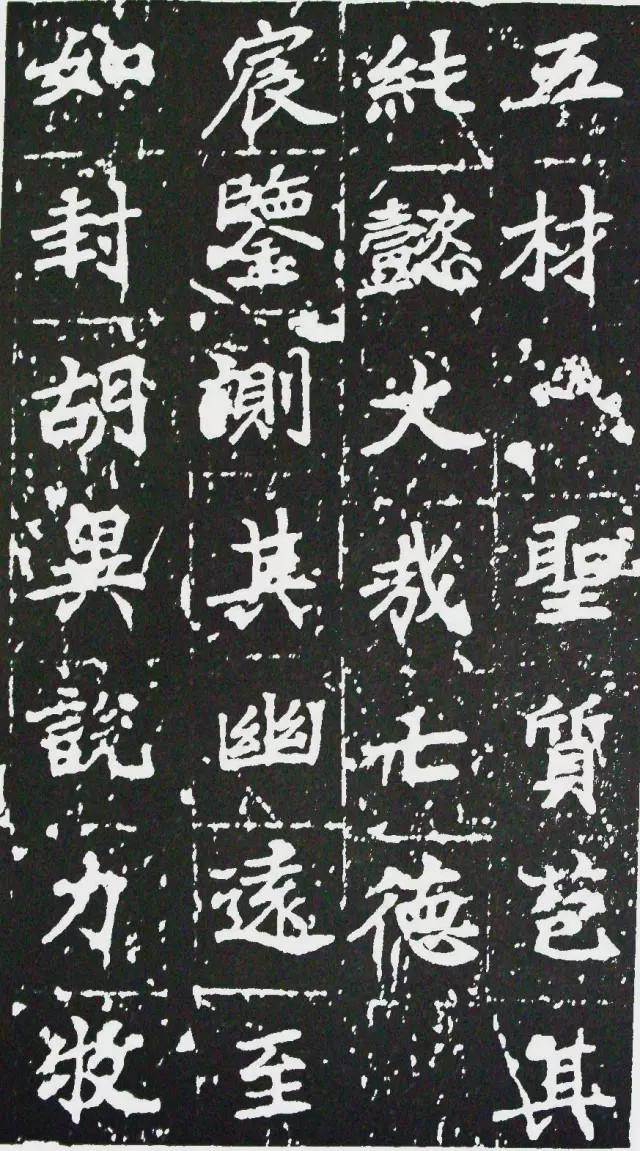 五材□聖質苞其
純懿大哉亡德
宸鑒測其幽遠至
如封胡異說力牧